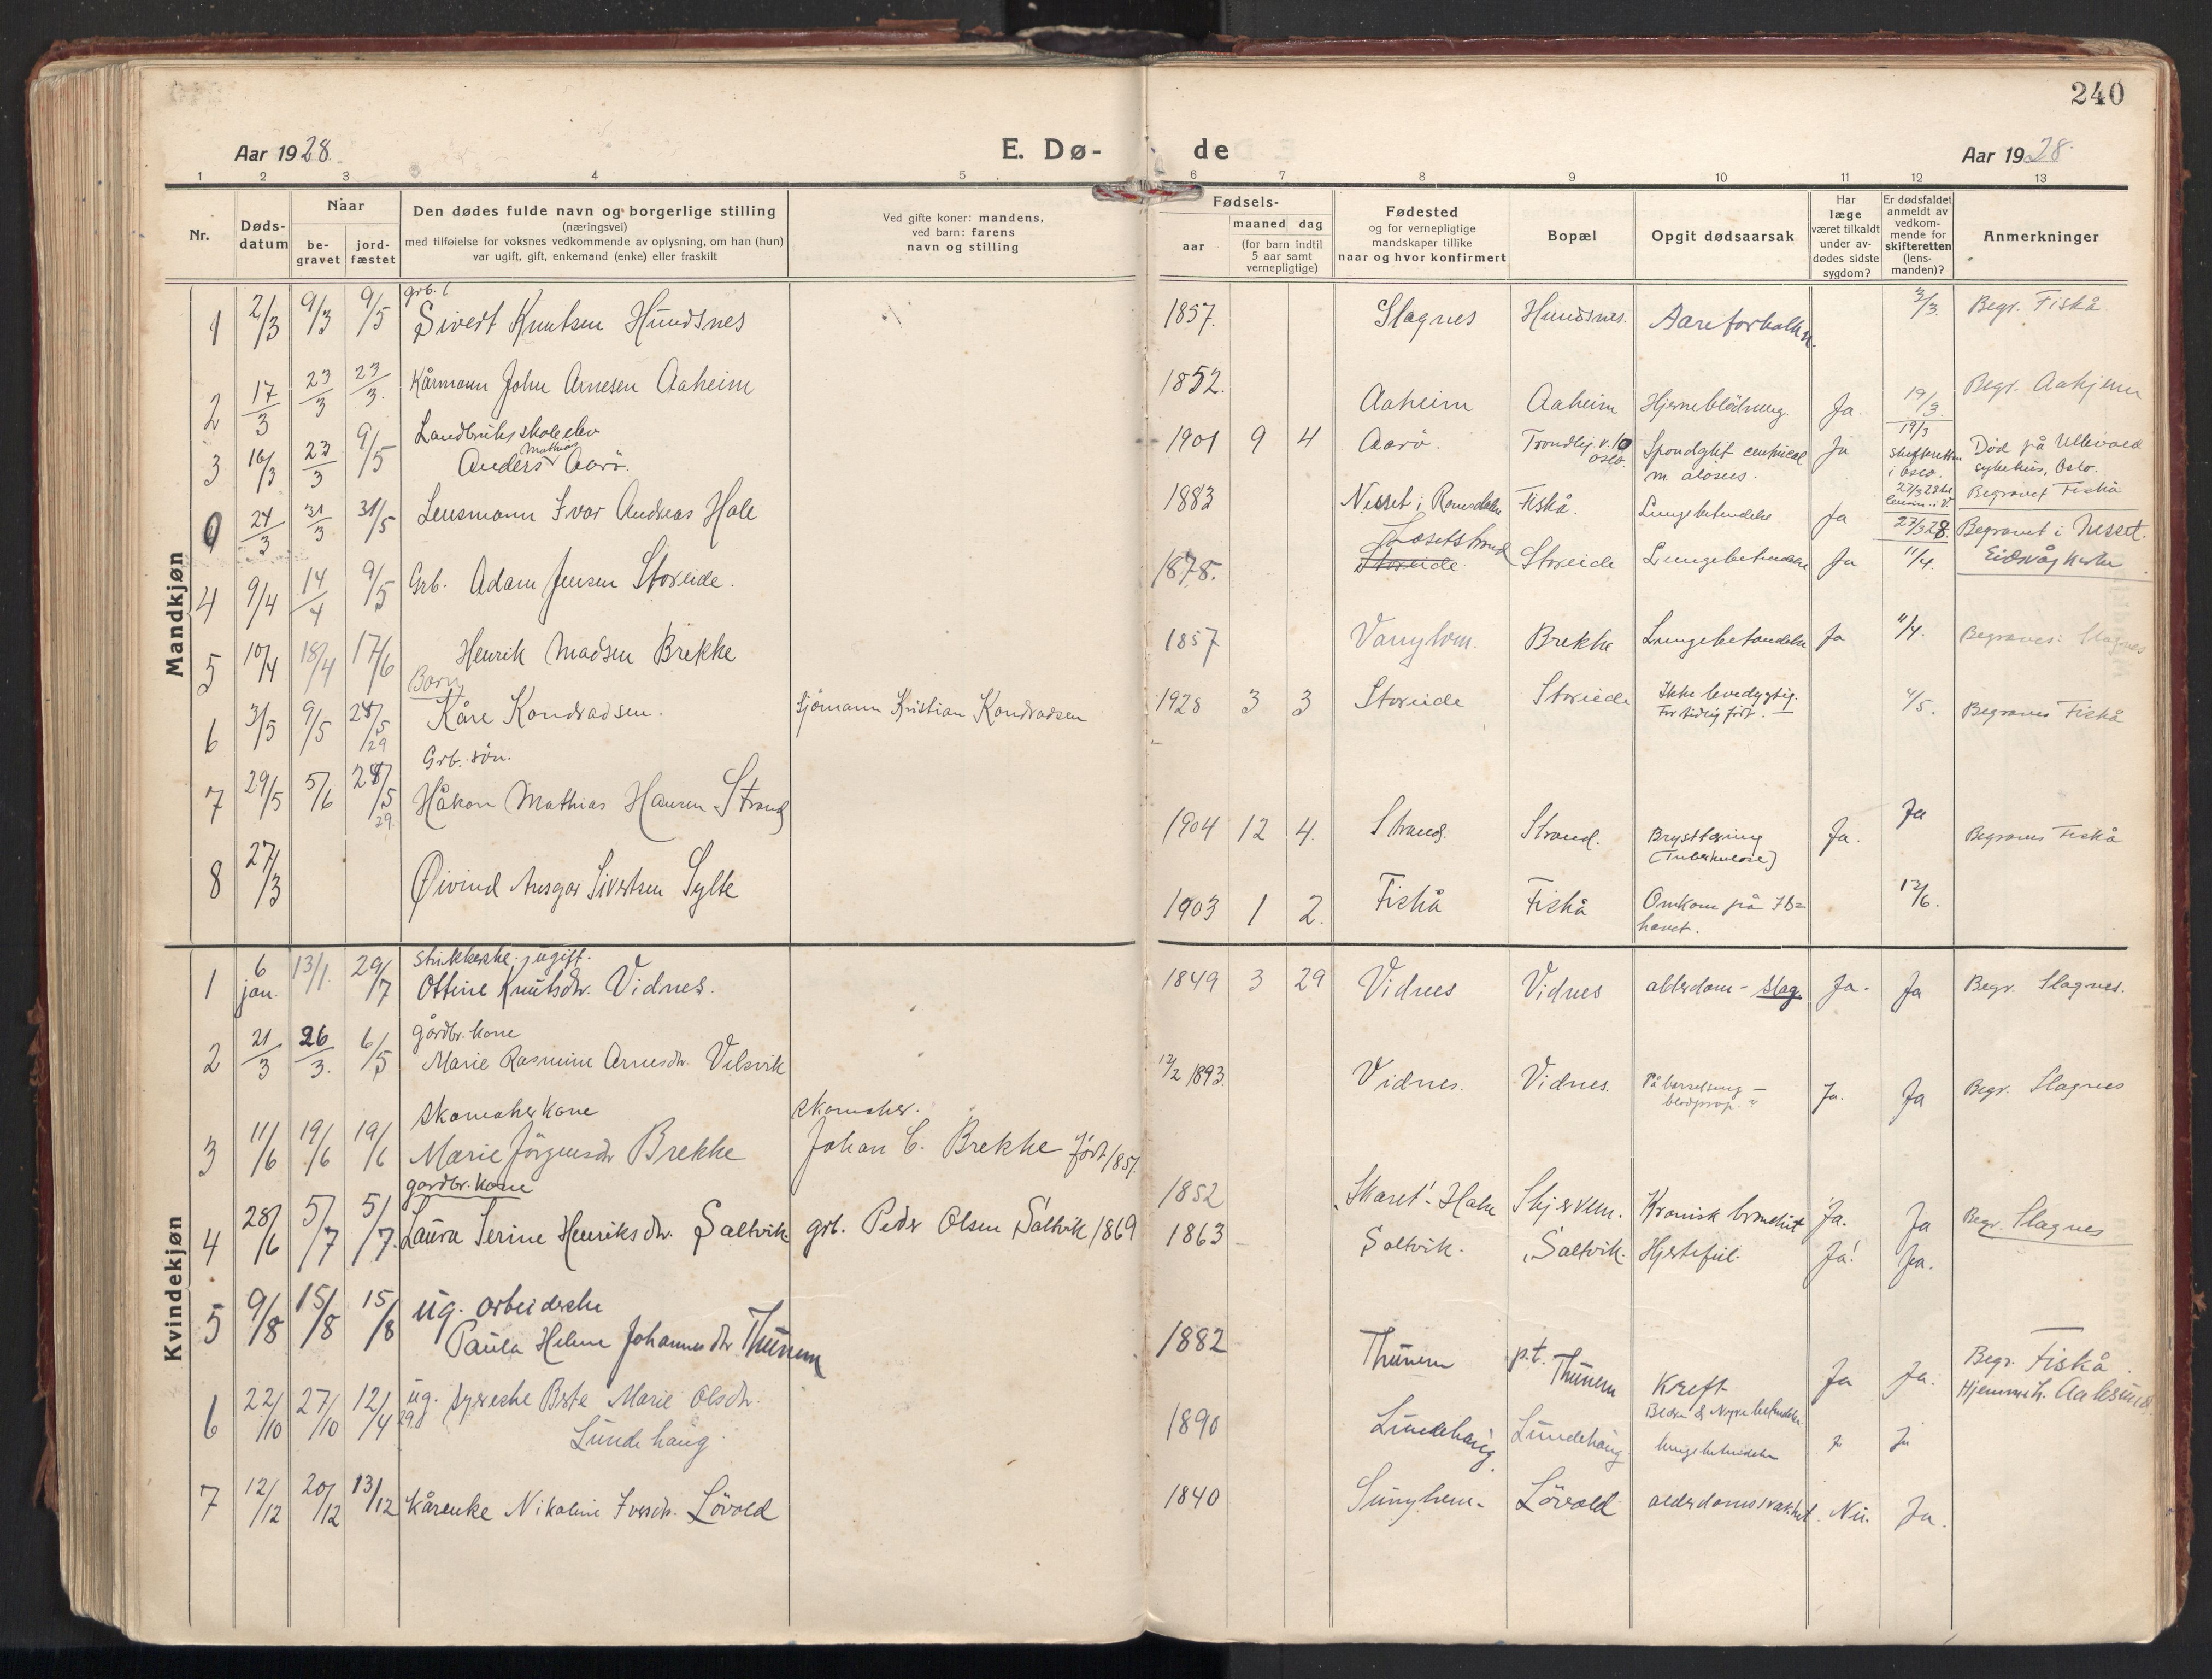 240
Aar 1928. E. Dø- de Aar 1928.
1 2 3 4 5 6 7 8 9 10 11 12 13
Nr.
Døds-
datum
Naar
be-
gravet
jord-
fæstet
Den dødes fulde navn og borgerlige stilling
(næringsvei)
med tilføielse for voksnes vedkommende av oplysning, om han (hun)
var ugift, gift, enkemand (enke) eller fraskilt
Ved gifte koner: mandens,
ved barn: farens
navn og stilling
Fødsels-
aar
maaned dag
(for barn indtil
5 aar samt
vernepligtige)
Fødested
og for vernepligtige
mandskaper tillike
naar og hvor konfirmert
Bopæl
Opgit dødsaarsak
Har
læge
været tilkaldt
under av-
dødes sidste
sygdom?
Er dødsfaldet
anmeldt av
vedkom-
mende for
skifteretten
(lens-
manden)?
Anmerkninger
Mandkjøn
grb.
1 2/3 9/3 9/5 Sivert Knutsen Hundsnes 1857. Slagnes Hundsnes. Aareforkalkn. 3/3. Begr. Fiskå.
2 17/3 23/3 23/3. Kårmann John Arnesen Aaheim 1852. Aaheim Aaheim Hjerneblödning. Ja. 19/3. Begr. Aahjem
Landbruksskoleelev
3 16/3 23/3 9/5 Anders Mathias Aarö. 1901 9 4 Aarö. Trondhj.v. 10 Oslo. Ja 19/3 skifteretten i Oslo. Död på Ullevold sykehus, Oslo.
Begravet Fiskå
0 24/3 31/3 31/5 Lensmann Ivar Andreas Hale 1883 Nesset i Romsdalen Fiskå. Lungebetendelse Ja 27/3 28. Begravet i Nesset.
Eidsvåg kirke
4 9/4 14/4 9/5 Grb. Adam Jensen Storeide. 1878. Storeide Storeide Lungebetendelse Ja 11/4.
5 10/4 18/4 17/6 Henrik Madsen Brekke 1857 Vanylven. Brekke Lungebetendelse Ja 11/4. Begraves: Slagnes
Barn
6 3/5 9/5 28/5 /29 Kåre Kondradsen. Sjömann Kristian Kondradsen 1928 3 3 Storeide Storeide Ikke levedygtig. For tidlig födt. 4/5. Begraves Fiskå
Grb. sön.
7 29/5 5/6 28/5 29. Håkon Mathias Hansen Strand 1904 12 4. Strand. Strand. Brysttæring (Tuberkulose) Ja. Ja Begraves Fiskå
8 27/3 Øivind Ansgar Sivertsen Sylte 1903 1 2. Fiskå Fiskå Omkom på Is=havet. 12/6.
Kvindekjøn
Strikkerske. ugift.
1 6 jan. 13/1. 29/7 Ottine Knutsdtr. Vidnes. 1849 3 29 Vidnes Vidnes alderdom - slag. Ja. Ja Begr. Slagnes.
gårdbr. kone
2 21/3 26/3. 6/5 Marie Rasmine Arnesdtr. Velsvik 12/2 1893. Vidnes. Vidnes. På barselseng - blodprop. Ja. Ja Begr. Slagnes
Skomaker kone Skomaker.
3 11/6 19/6 19/6 Marie Jörgensdtr Brekke Johan C. Brekke födt 1851. 1852 Skaret - Hale Skjerven. Kronisk bronchit Ja. Ja Begr. Slagnes
gardbr. kone
4 28/6 5/7 5/7. Laura Serine Henriksdtr. Saltvik. grb. Peder Olsen Saltvik 1869 1863 Saltvik. Saltvik. Hjertefeil. Ja! Ja.
ug. arbeiderske
5 9/8 15/8 15/8 Paula Helene Johannesdtr Thunem 1882 Thunem p.t. Thunem Kreft Ja Ja. Begr. Fiskå.
Hjemmeh. Aalesund.
6 22/10 27/10 12/4 29. ug. syerske Berte Marie Olsdtr. Lundehaug 1890 Lundehaug. Lundehaug. Lungebetendelse Ja
7 12/12 20/12 13/12 Kårenke Nikoline Iversdtr. Lövold 1840 Lövold alderdomssvakhet. Nei. Ja.